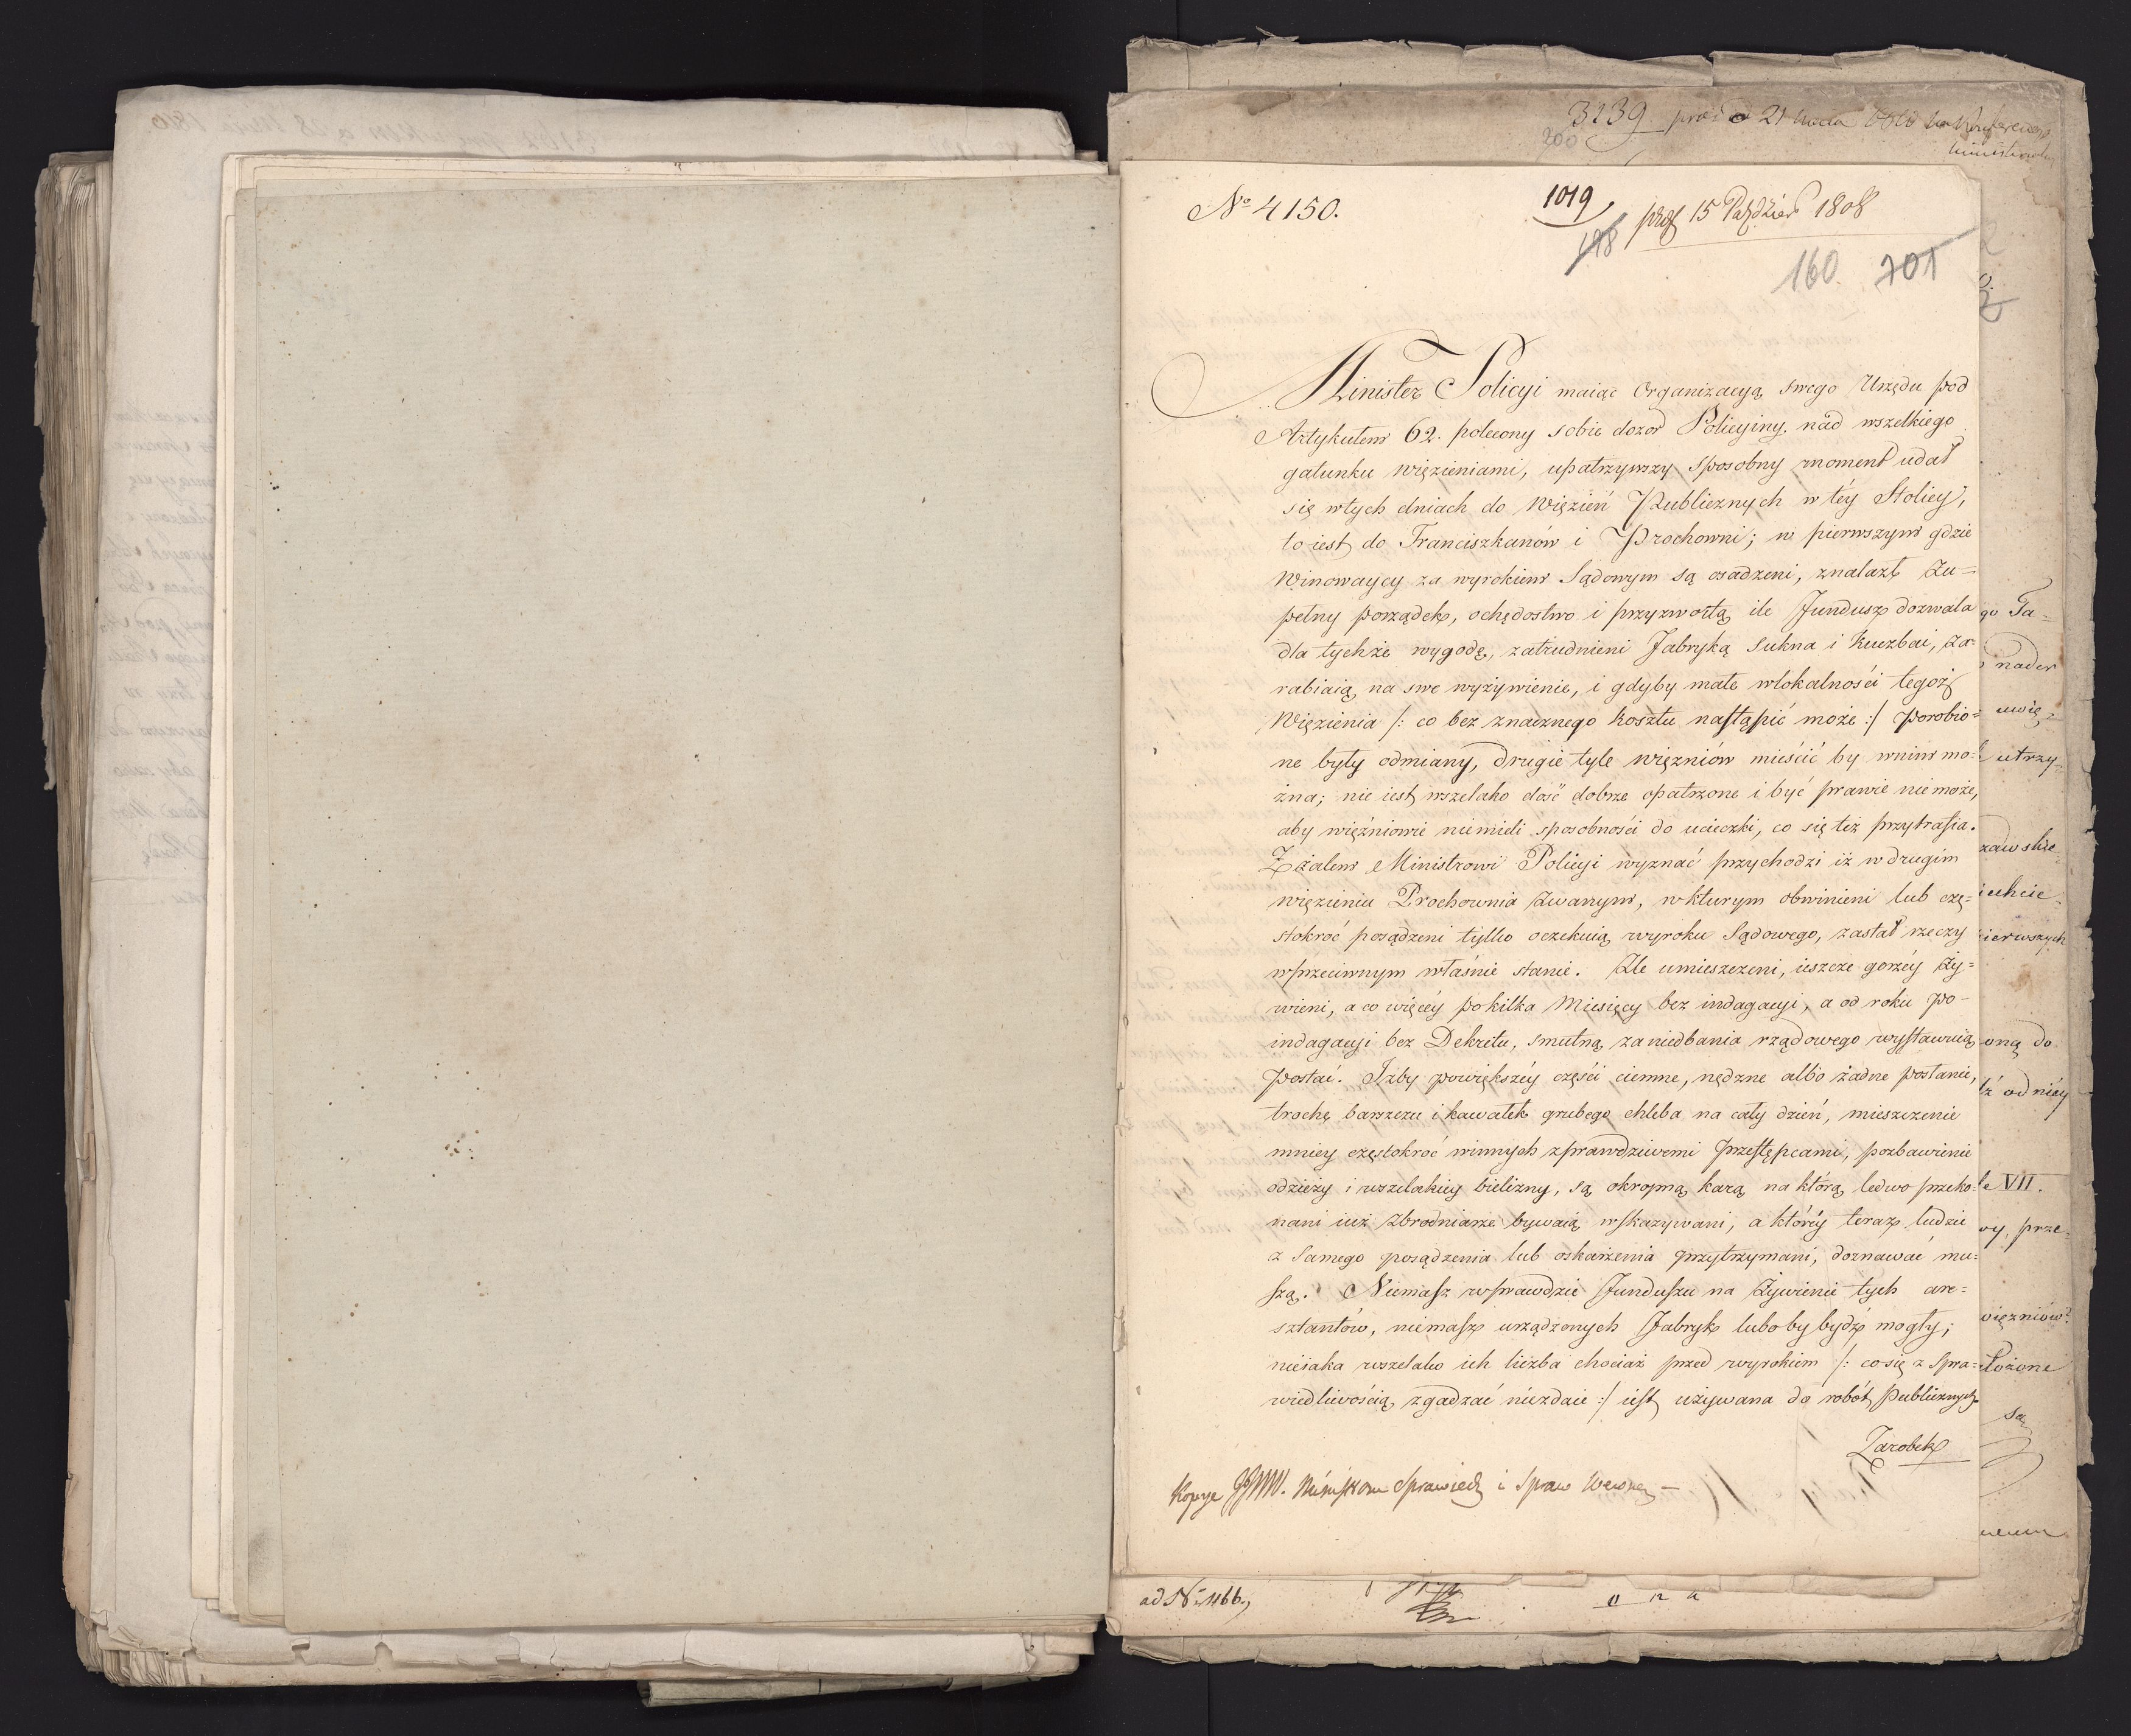 3239 21
200
No 4150.
1019
198
15 Paździer 1808
160. 701
Minister Policyi maiąc Organizacyą swego Urzędu pod
Artykułem 62. polecony sobie dozor Policyiny nad wszelkiego
gatunku więzieniami, upatrzywszy sposobny moment udał
się wtych dniach do Więzień Publicznych w téy Stolicy,
to iest do Franciszkanów i Prochowni; w pierwszym gdzie
Winowaycy za wyrokiem Sądowym są osadzeni, znalazł Zu-
pełny porządek, ochędostwo i przyzwoitą ile Fundusz dozwala
dla tychże wygodę, zatrudnieni Fabryką Sukna i Kuczbai, Za-
rabiaią na swe wyżywienie, i gdyby małe wlokalności tegoż
Więzienia /: co bez znacznego Kosztu nastąpić może :/ porobio=
ne były odmiany, drugie tyle więzniów mieścić by wnim mo-
żna; nie iest wszelako dość dobrze opatrzone i być prawie nie może,
aby więźniowie niemieli sposobności do ucieczki, co się też przytrafia.
Z żalem Ministrowi Policyi wyznać przychodzi iż w drugim
więzieniu Prochownia Zwanym, wkturym obwinieni lub czę=
stokroć posądzeni tylko oczekuią wyroku Sądowego, zastał rzeczy
wprzeciwnym właśnie stanie. Zle umieszczeni, ieszcze gorzéy Ży=
wieni, a co więcéy po kilka Miesięcy bez indagacyi, a od roku po-
indagacyi bez Dekretu, smutną zaniedbania rządowego wystawuią
postać. Izby powiększéy części ciemne, nędzne albo żadne posłanie,
trochę barszczu i kawałek grubego chleba na cały dzień, mieszczenie
mniey częstokroć winnych zprawdziwemi przestępcami, pozbawienie
odzieży i wszelakiey bielizny, są okropną karą na którą ledwo przeko-
nani iuż Zbrodniarze bywaią wskazywani, a któréy teraz ludzie
z Samego posądzenia lub oskarżenia przytrzymani, doznawać mu=
szą. Niemasz wprawdzie Funduszu na Żywienie tych are=
sztantów, niemasz urządzonych Fabryk luboby bydź mogły;
nieiaka wszelako ich liczba chociaż przed wyrokiem /: co się z Spra=
wiedliwością zgadzać niezdaie :/ iest używana do robót Publicznych
Zarobek
Kopye Ministrom Sprawied i Spraw Wewnę
ad No 1166,
go Ta-
nader
uwię-
utrzy-
ierwszych
oną do
odniéy
VII.
prze-
więzniów
łożone
są